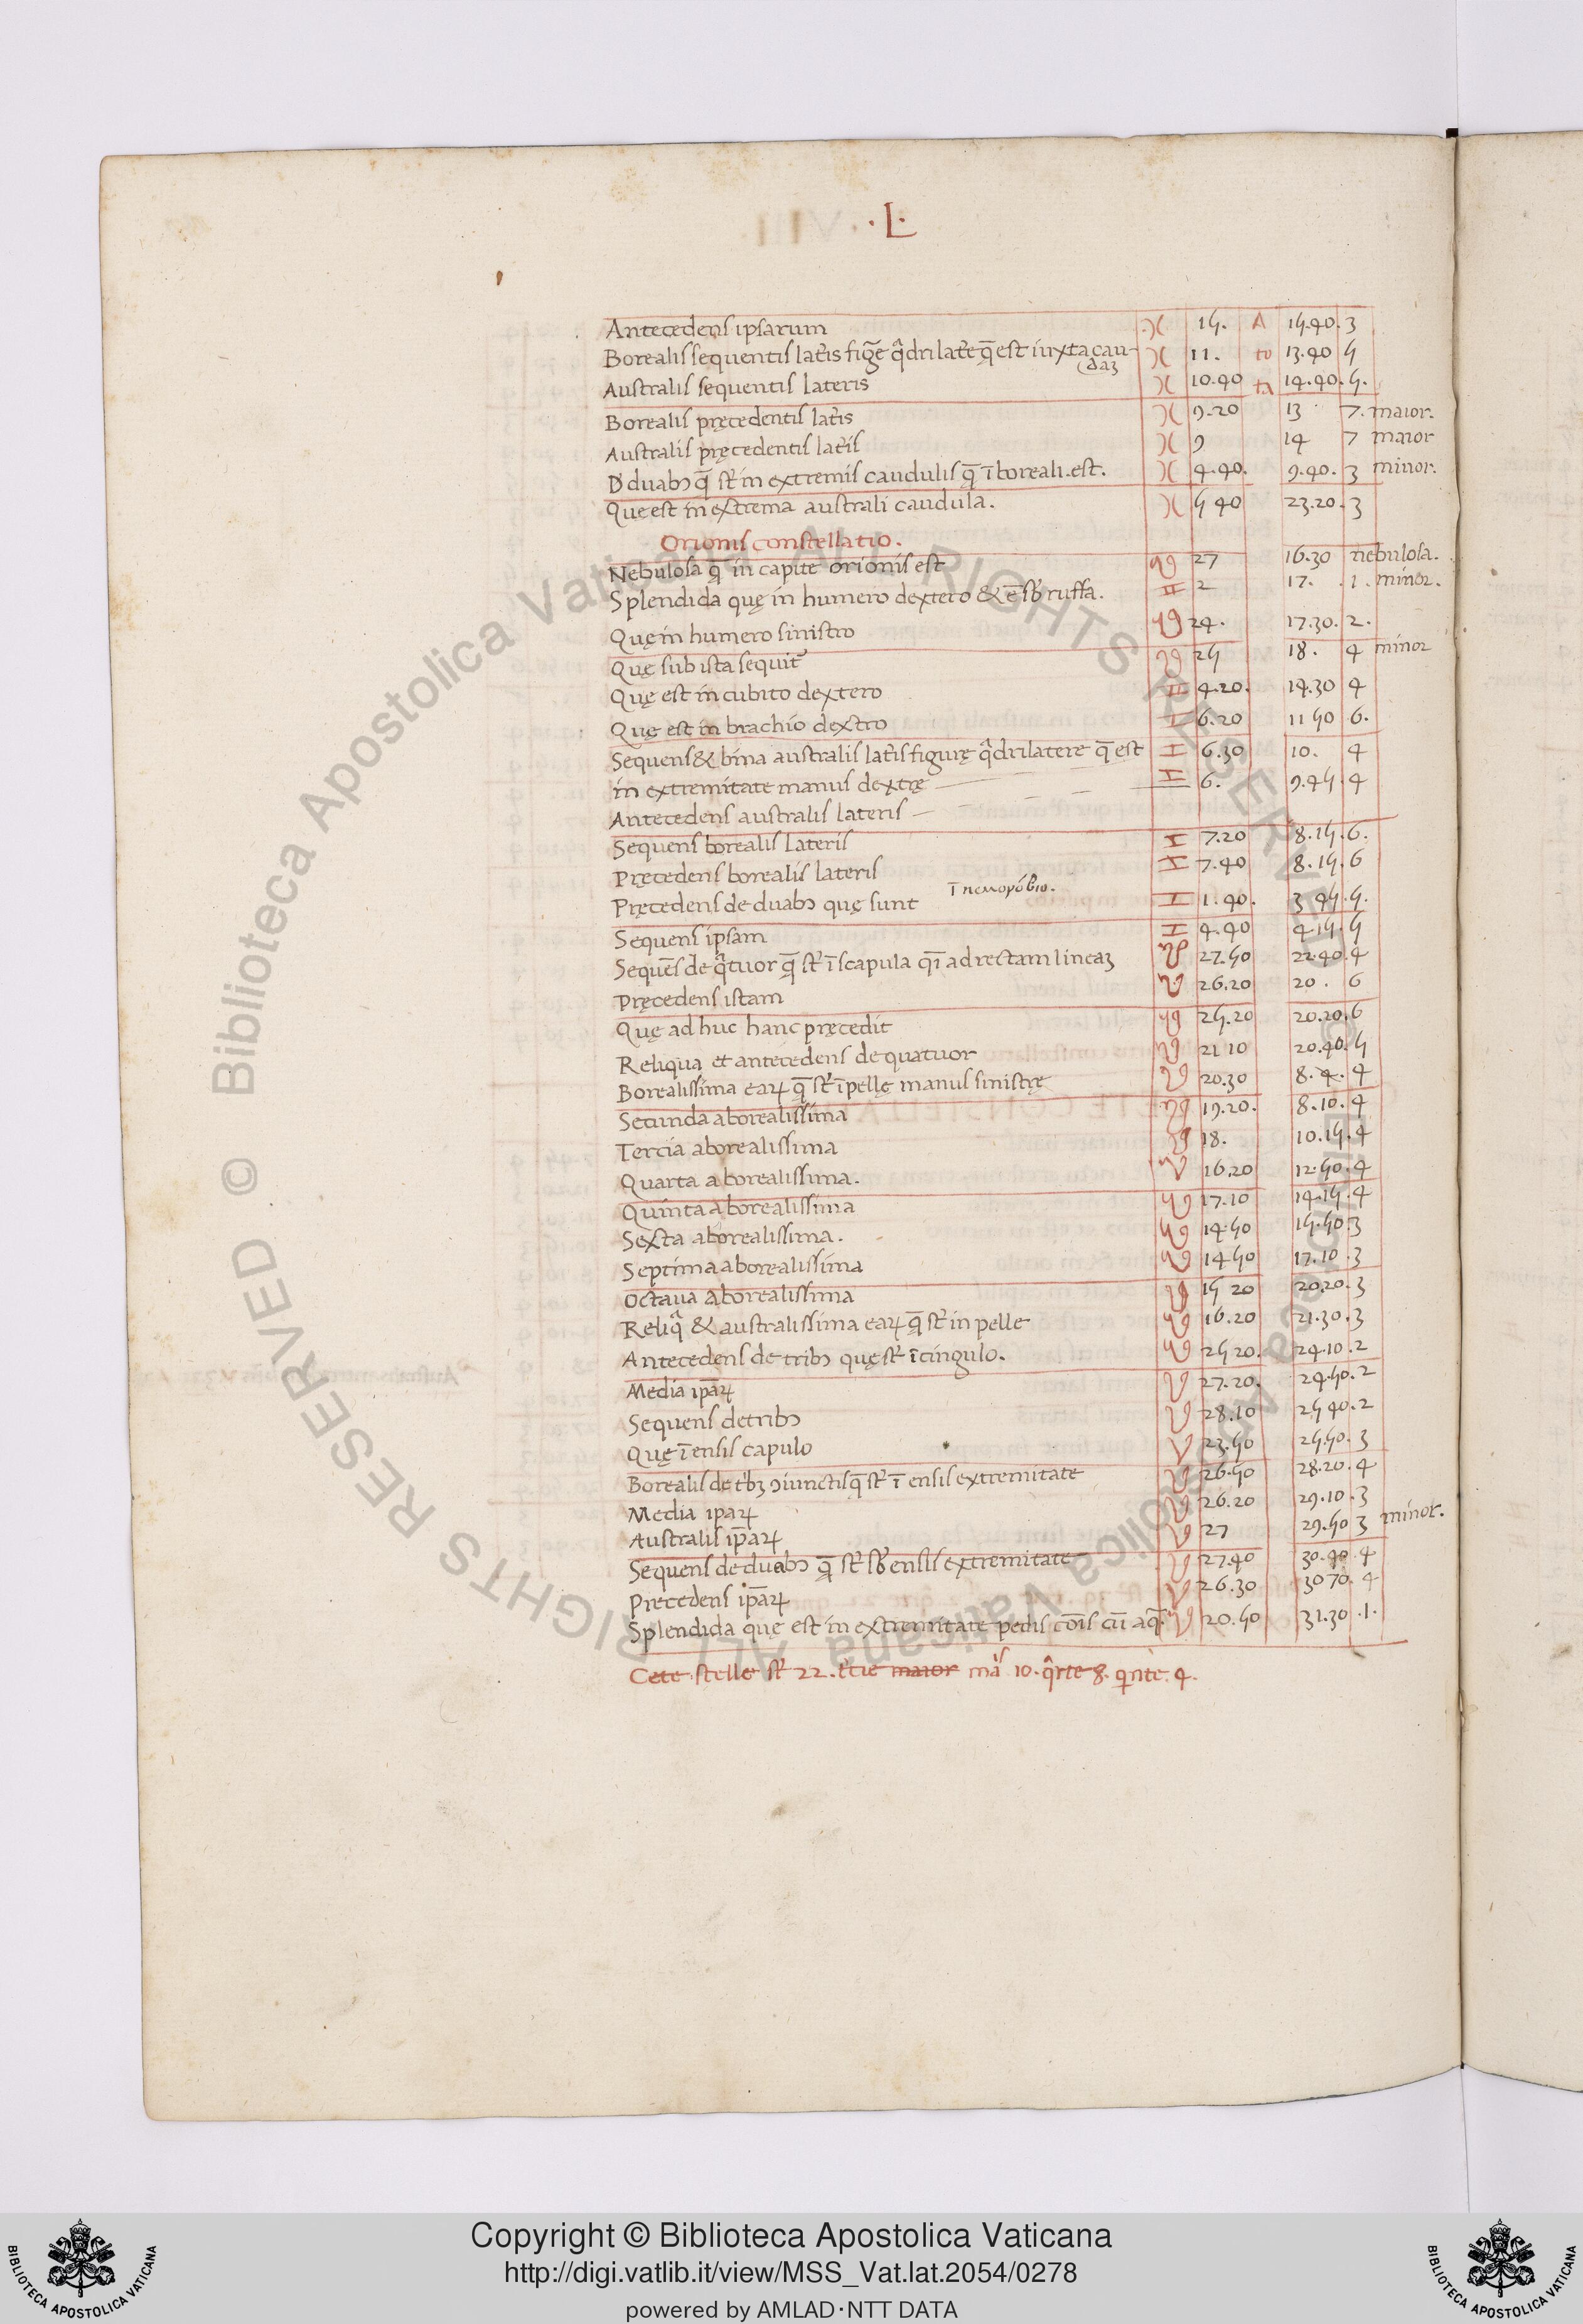 ·L·
Antecedens ipsarum ♓ 15. A 15.40. 3
Borealis sequentis lat̃is fig̃e q̃drilatẽ q̃ est iuxta cau- ♓ 11. to 13.40 5
daʒ
Australis sequentis lateris ♓ 10.40 ta 14.40. 5.
Borealis pręcedentis lat̃is ♓ 9.20 13 7. maior.
Australis pręcedentis lat̃is ♓ 9 14 7 maior
D' duabꝫ q̃ st̃ in extremis caudulis q̃ ĩ boreali.est. ♓ 4.40. 9.40. 3 minor.
Que est in extrema australi caudula. ♓ 5 40 23.20. 3
Orionis constellatio.
Nebulosa q̃ in capite orionis est ♉ 27 16.30 nebulosa.
Splendida quę in humero dextero & ẽ sb̃ ruffa. ♊ 2 17. . 1. minor.
Quę in humero sinistro ♉ 24. 17.30. 2.
Quę sub ista sequit̃ ♉ 25 18. 4 minor
Quę est in cubito dextero ♊ 4.20. 14.30 4
Quę est in brachio dextro ♊ 6.20 11 50 6.
Sequens & bina australis lat̃is figurę q̃drilatere q̃ est ♊ 6.30 10. 4
in extremitate manus dextrę ♊ 6. 9.45. 4
Antecedens australis lateris
Sequens borealis lateris ♊ 7.20 8.15. 6.
Pręcedens borealis lateris ♊ 7.40 8.15. 6
Pręcedens de duabꝫ quę sunt ♊ 1.40. 3 45. 5.
Sequens ipsam ♊ 4.40 4.15. 5
Sequẽs de q̃tuor q̃ st̃ ĩ scapula q̃ĩ ad rectam lineaʒ ♉ 27.50 22.40. 4
Pręcedens istam ♉ 26.20 20. 6
Quę ad huc hanc pręcedit ♉ 25.20 20.20. 6
Reliqua et antecedens de quatuor ♉ 21 10 20.40. 5
Borealissima eaꝝ q̃ st̃ ĩ pelle manus sinistrę ♉ 20.30 8. 4. 4
Secunda a borealissima ♉ 19.20. 8.10. 4
Tercia a borealissima ♉ 18. 10.15. 4
Quarta a borealissima. ♉ 16.20 12.50. 4
Quinta a borealissima ♉ 17.10 14.15. 4
Sexta a borealissima. ♉ 14.50 15.50. 3
Septima a borealissima ♉ 14 50 17.10. 3
Octaua a borealissima ♉ 15 20 20.20. 3
Reliq̃ & australissima eaꝝ q̃ st̃ in pelle ♉ 16.20 21.30. 3
Antecedens de tribꝫ quę st̃ ĩ cingulo. ♉ 25 20. 24.10. 2
Media ip̃aꝝ ♉ 27.20. 24.50. 2
Sequens de tribꝫ ♉ 28.10 25 40. 2
Quę ĩ ensis capulo ♉ 23.50 25.50. 3
Borealis de t̃bꝫ ꝯiunctis q̃ st̃ ĩ ensis extremitate ♉ 26.50 28.20. 4
Media ipaꝝ ♉ 26.20 29.10. 3
Australis ip̃aꝝ ♉ 27 29.50 3 minor.
Sequens de duabꝫ q̃ st̃ sb̃ ensis extremitate ♉ 27.40 30.40. 4
Precedens ip̃aꝝ ♉ 26.30 30 70. 4
Splendida quę est in extremitate pedis cõis cũ aq̃. ♉ 20.50 31.30. 1.
Cete stelle st̃ 22. t̃tie maior 10. q̃rte 8. qinte. 4.
Copyright © Biblioteca Apostolica Vaticana
http://digi.vatlib.it/view/MSS_Vat.lat.2054/0278
powered by AMLAD·NTT DATA
BIBLIOTECA APOSTOLICA VATICANA
BIBLIOTECA APOSTOLICA VATICANA
© Biblioteca Apostolica Vaticana ALL RIGHTS RESERVED
© Biblioteca Apostolica Vaticana ALL RIGHTS RESERVED